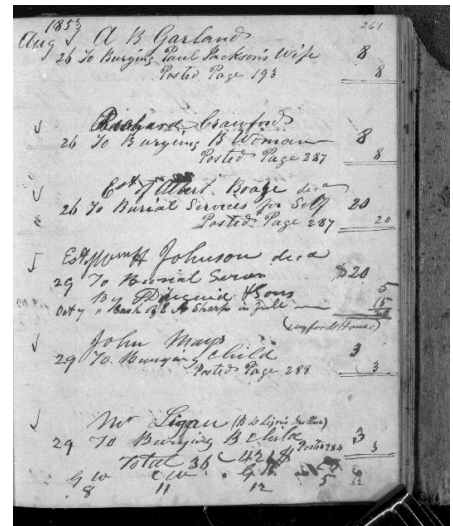 261
1853
Aug A B Garland
26 To Burying Paul Jackson's Wife 8
Posted Page 193 8
Richard Crawford
26 To Burying B Woman 8
Posted Page 287 8
Est of Albert Boage decd
26 To Burial Services for Self 20
Posted Page 237 20
Est of H Johnson decd
29 To Burial $20
By & Sons 5
Oct 7 " Cash of E A Sharp in full 15
John Mays
29 To Burying Child 3
Posted Page 288 3
Mr Ligan
29 To Burying B Child Posted 284 3
Total 36 3
G W C W G B
8 11 12 5